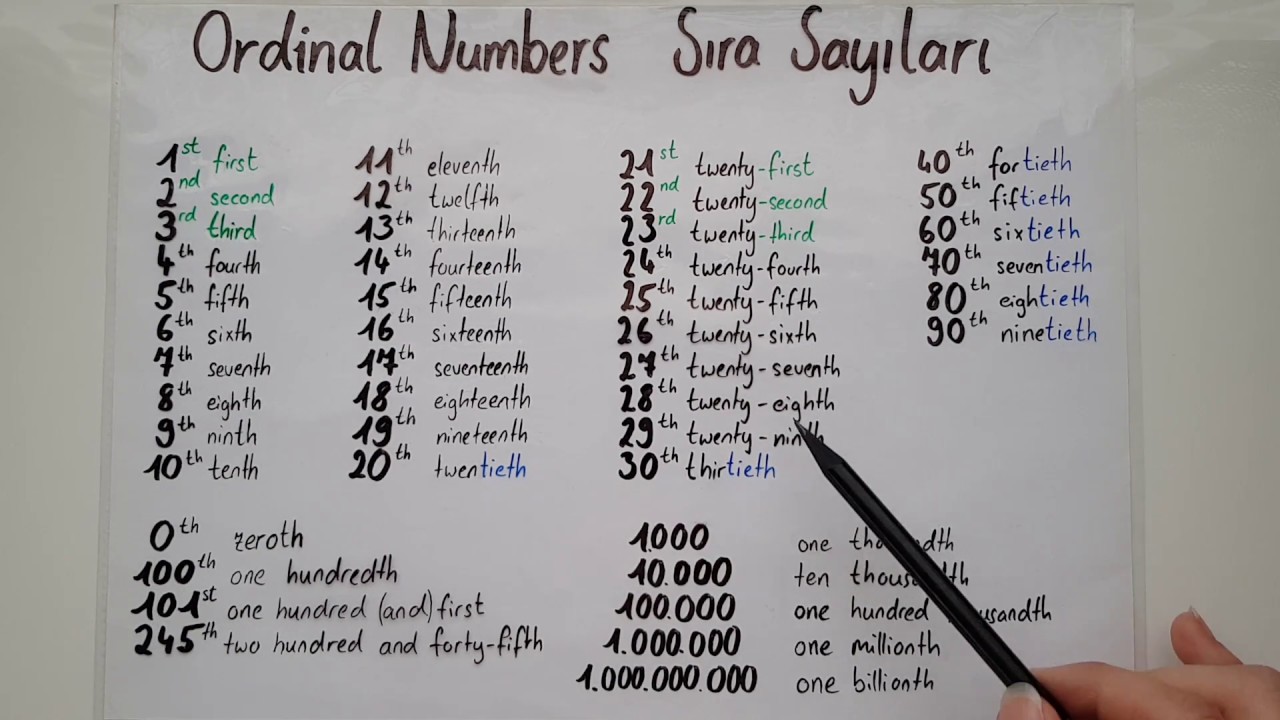 Ordinal Numbers Sıra Sayıları
1st first
2nd second
3rd third
4th fourth
5th fifth
6th sixth
7th seventh
8th eighth
9th ninth
10th tenth
11th eleventh
12th twelfth
13th thirteenth
14th fourteenth
15th fifteenth
16th sixteenth
17th seventeenth
18th eighteenth
19th nineteenth
20th twentieth
21st twenty-first
22nd twenty-second
23rd twenty-third
24th twenty-fourth
25th twenty-fifth
26th twenty-sixth
27th twenty-seventh
28th twenty-eighth
29th twenty-ninth
30th thirtieth
40th fortieth
50th fiftieth
60th sixtieth
70th seventieth
80th eightieth
90th ninetieth
0th zeroth
100th one hundredth
101st one hundred (and) first
245th two hundred and forty-fifth
1.000 one
10.000 ten thousandth
100.000 one hundred
1.000.000 one millionth
1.000.000.000 one billionth